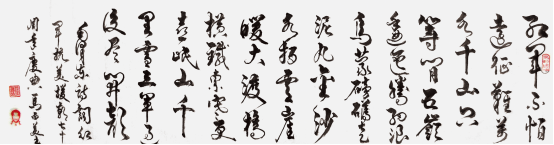 红軍不怕
遠征難萬
水千山只
等閒五嶺
逶迤騰細浪
烏蒙磅礴走
泥丸金沙
水拍雲崖
暖大渡橋
橫鐵索寒更
喜岷山千
里雪三軍過
後尽開顏
毛澤東詩詞红